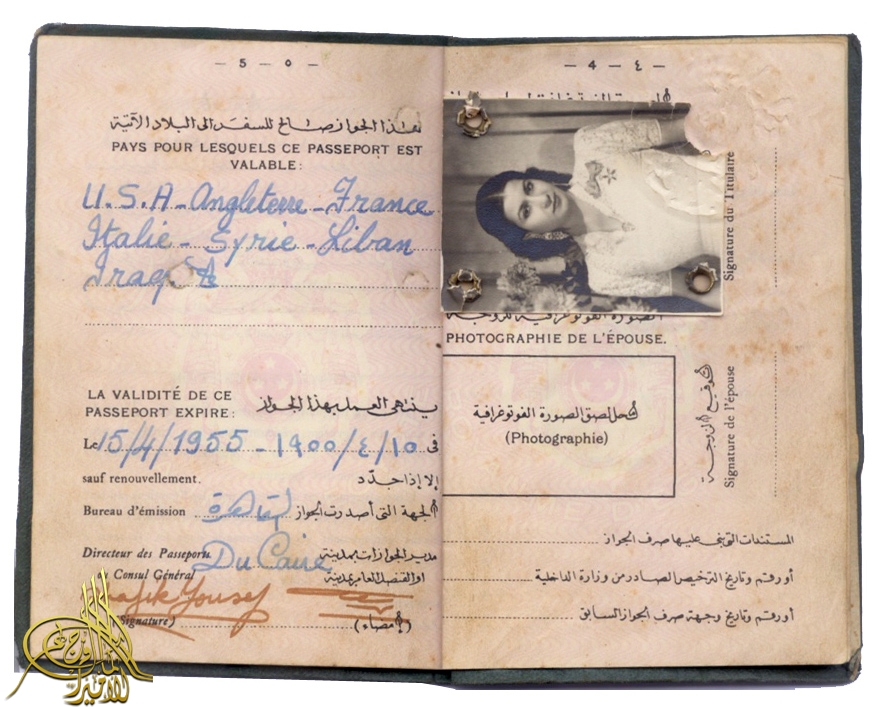 — 5 — ٥ —
هذا الجواز صالح للسفر الى البلاد الآتية
PAYS POUR LESQUELS CE PASSEPORT EST
VALABLE:
U.S.A - Angleterre - France
Italie - Syrie - Liban
Iraq
LA VALIDITÉ DE CE
PASSEPORT EXPIRE:
ينتهى العمل بهذا الجواز
Le 15/4/1955 - ١٩٥٥/٤/١٥ فى
sauf renouvellement.
إلا إذا جدّد
Bureau d'émission القاهرة الجهة التى أصدرت الجواز
Directeur des Passeports
Du Caire
مدير الجوازات بمدينة
Consul Général
او القنصل العام بمدينة
Yousef
(Signature)
(إمضاء)
— 4 — ٤ —
Signature du Titulaire
الصورة الفوتوغرافية للزوجة
PHOTOGRAPHIE DE L'ÉPOUSE.
محل لصق الصورة الفوتوغرافية
(Photographie)
توقيع الزوجة
Signature de l'épouse
المستندات التى بنى عليها صرف الجواز
أو رقم وتاريخ الترخيص الصادر من وزارة الداخلية
أو رقم وتاريخ وجهة صرف الجواز السابق